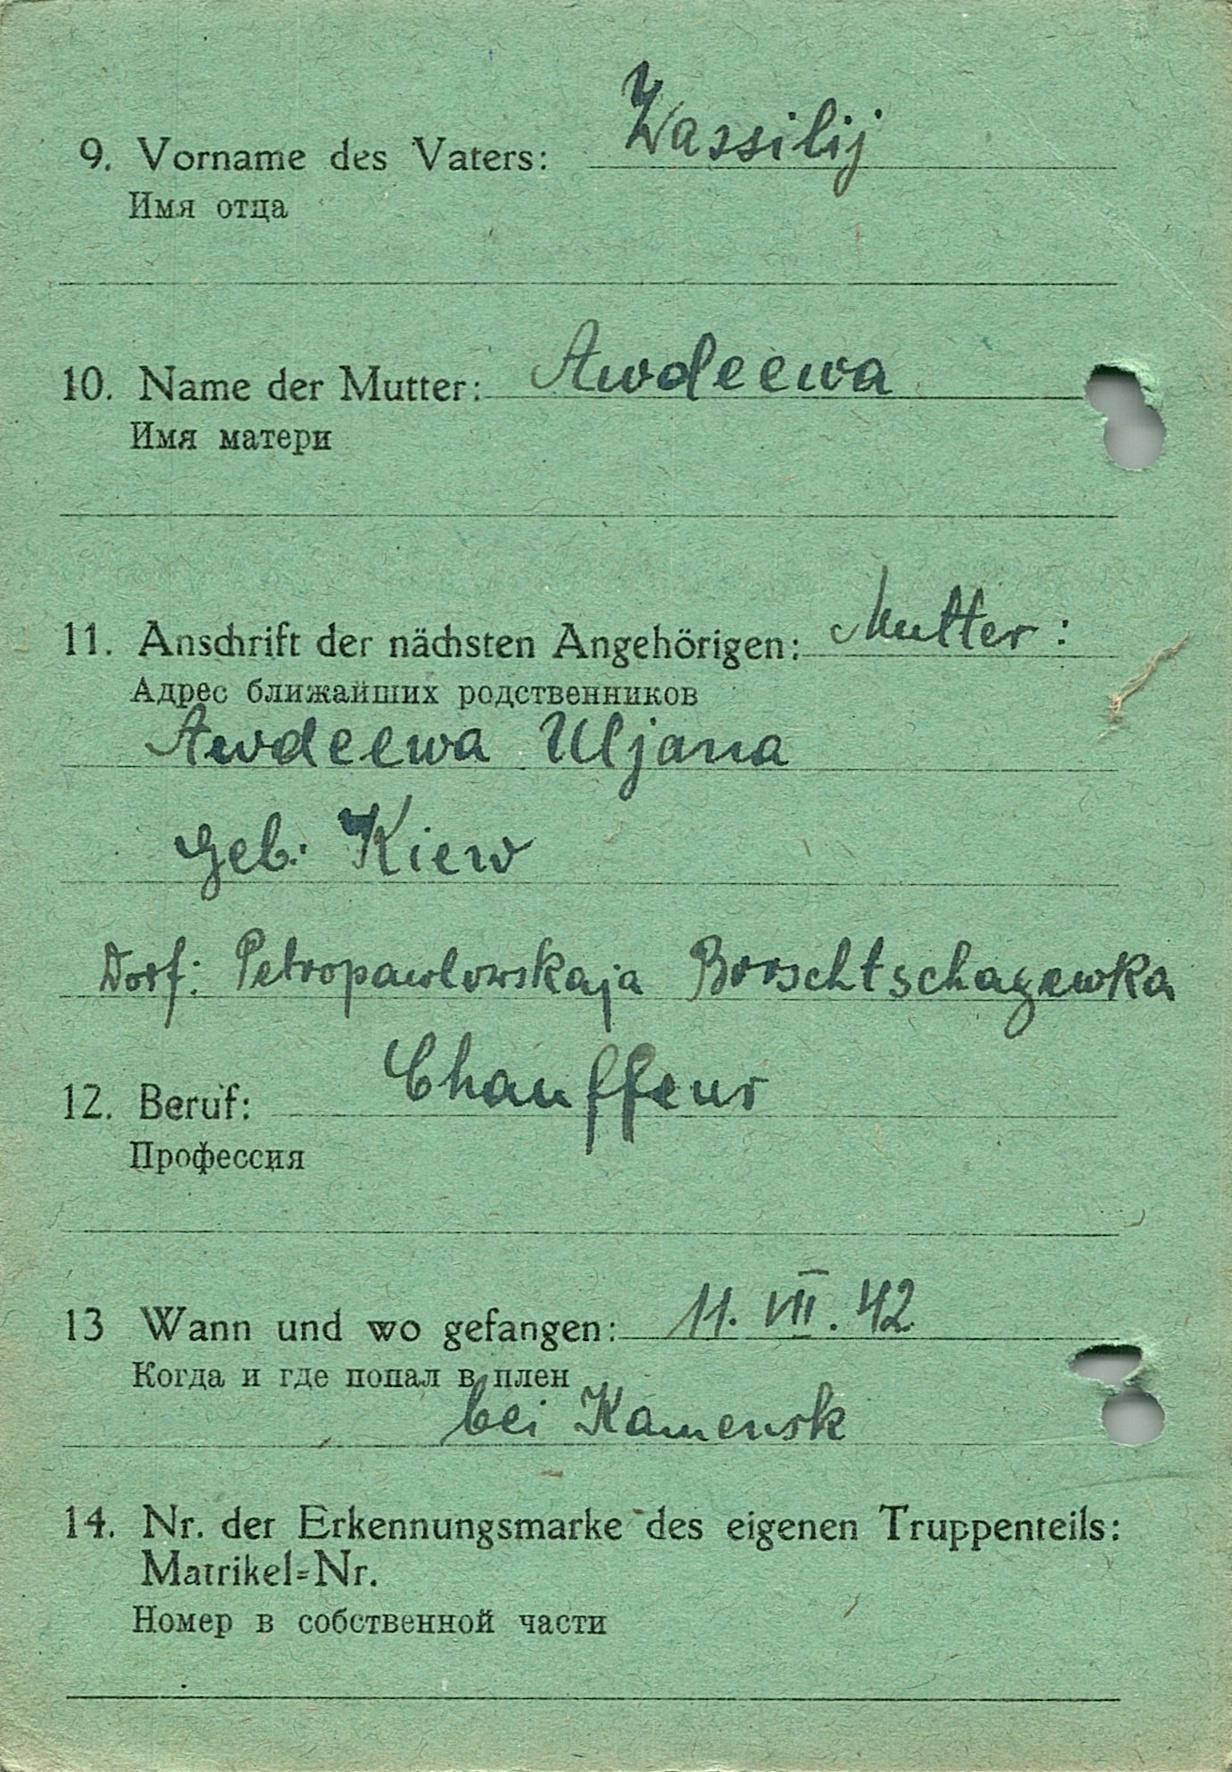 9. Vorname des Vaters: Wassilij
Имя отца
10. Name der Mutter: Awdeewa
Имя матери
11. Anschrift der nächsten Angehörigen: Mutter:
Адрес ближайших родственников
Awdeewa Uljana
Geb: Kiew
Dorf: Petropawlowskaja Borschtschagewka
12. Beruf: Chauffeur
Профессия
13 Wann und wo gefangen: 11. VII. 42
Когда и где попал в плен
bei Kamensk
14. Nr. der Erkennungsmarke des eigenen Truppenteils:
Matrikel=Nr.
Номер в собственной части